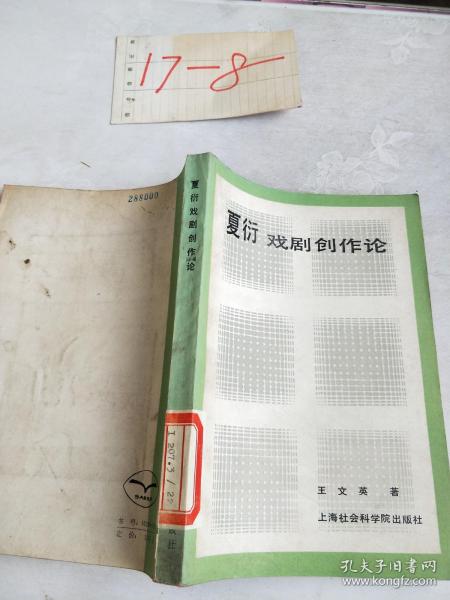 17-8
288000
夏衍戏剧创作论
夏衍 戏剧创作论
I207.3/29
王文英 著
上海社会科学院出版社
书号:
定价:
孔夫子旧书网
kongfz.com